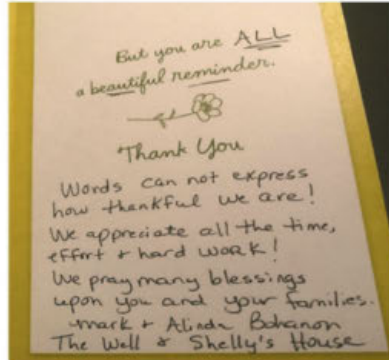 But you are ALL
a beautiful reminder.
Thank You
Words can not express
how thankful we are!
We appreciate all the time,
effort + hard work!
We pray many blessings
upon you and your families.
Mark + Alinda Bohanon
The Well & Shelly's House